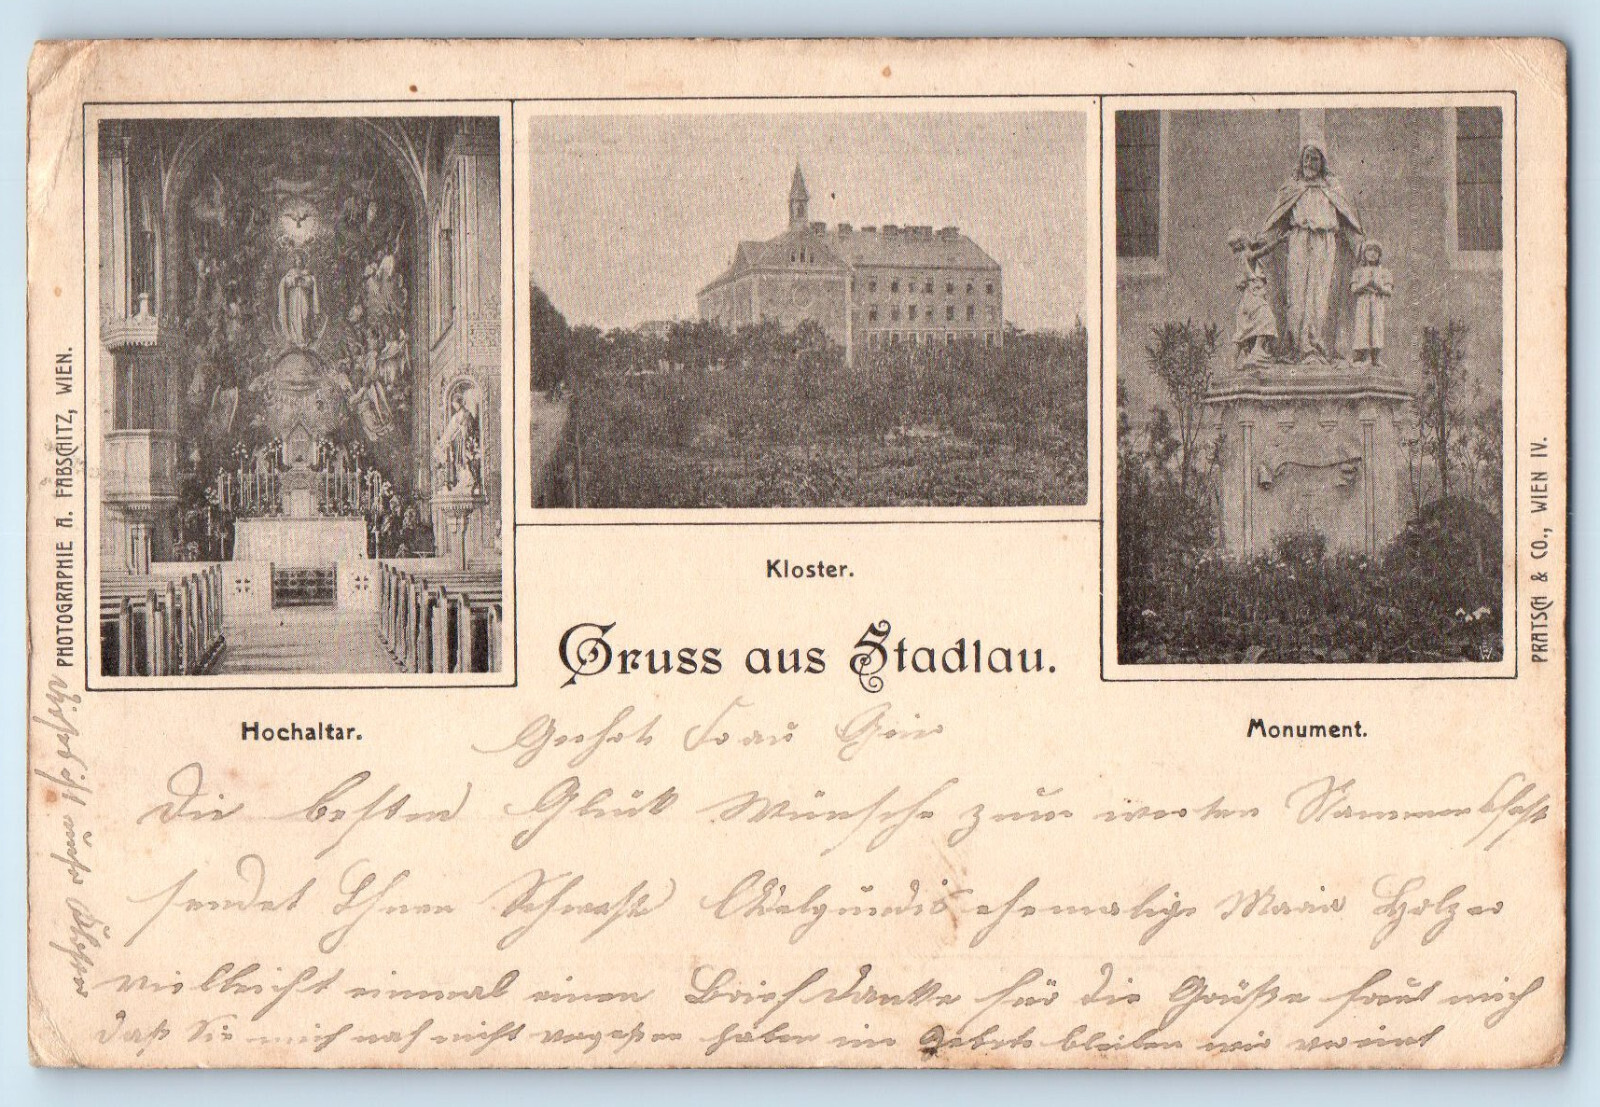 PHOTOGRAPHIE A. FABSCHITZ, WIEN.
Kloster.
Gruss aus Stadlau.
Hochaltar.
Monument.
PRATSCH & CO., WIEN IV.
Geehrte Frau
Die besten Glück Wünsche zum werten Nammensfeste
sendet Ihnen Schwester Adelgundis ehemalige Marie Holzer
vielleicht einmal einen Brief danke für die Grüße freut mich
daß Sie mich nach nicht vergeßen haben im Gebete bleiben wir vereint